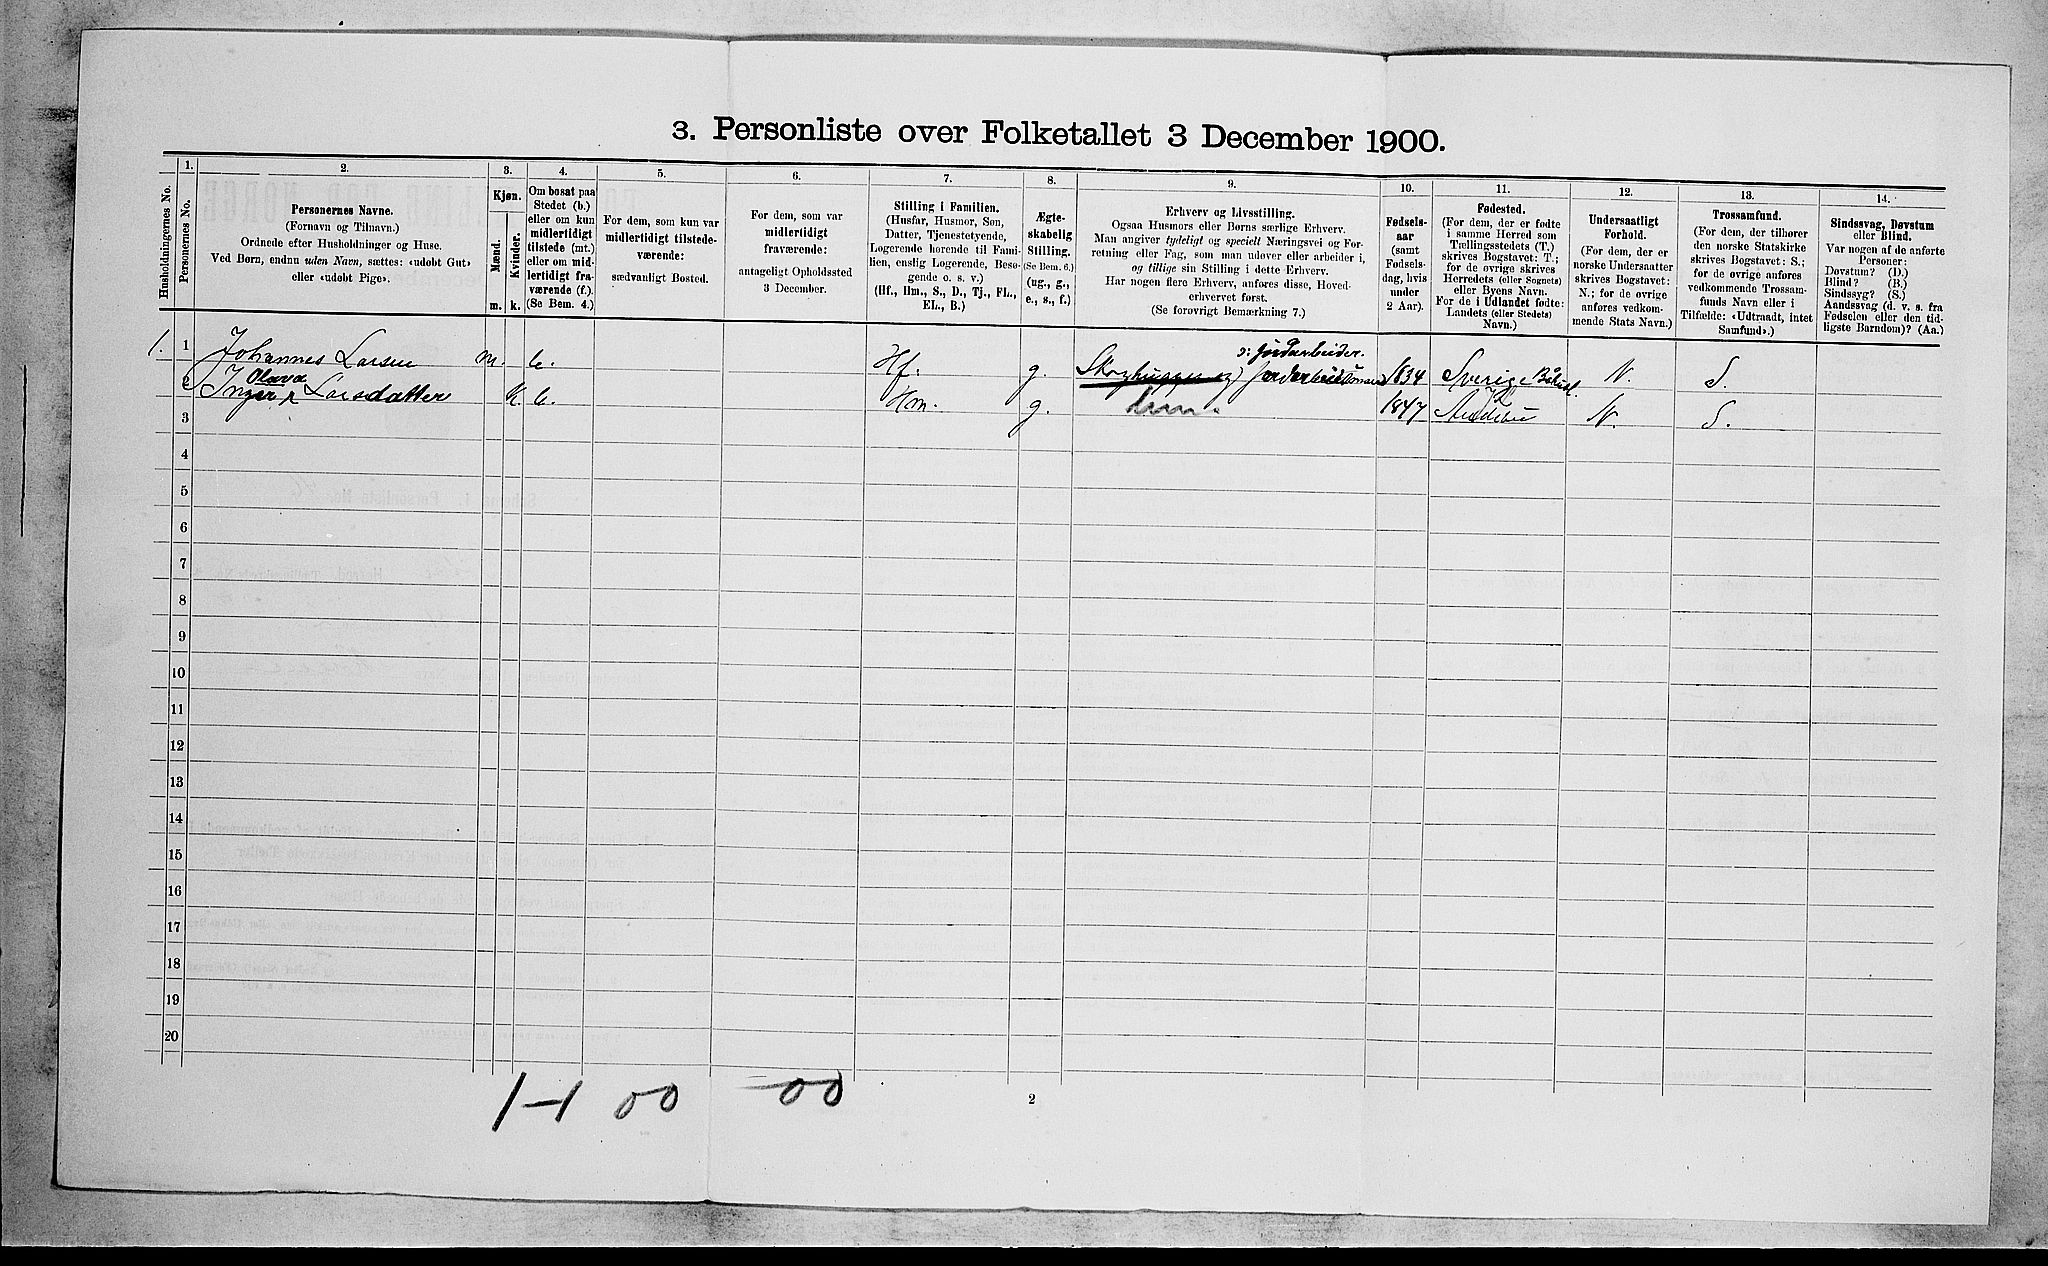 3. Personliste over Folketallet 3 December 1900.
Husholdningernes No.
1.
Personernes No.
2.
Personernes Navne.
(Fornavn og Tilnavn.)
Ordnede efter Husholdninger og Huse.
Ved Børn, endnu uden Navn, sættes: «udøbt Gut»
eller «udøbt Pige».
3.
Kjøn.
Mænd.
Kvinder.
m.
k.
4.
Om bosat paa
Stedet (b.)
eller om kun
midlertidigt
tilstede (mt.)
eller om mid-
lertidigt fra-
værende (f.).
(Se Bem. 4.)
5.
For dem, som kun var
midlertidigt tilstede-
værende:
sædvanligt Bosted.
6.
For dem, som var
midlertidigt
fraværende:
antageligt Opholdssted
3 December.
7.
Stilling i Familien.
(Husfar, Husmor, Søn,
Datter, Tjenestetyende,
Logerende hørende til Fami-
lien, enslig Logerende, Besø-
gende o. s. v.)
(Hf., Hm., S., D., Tj., Fl.,
El., B.)
8.
Ægte-
skabelig
Stilling.
(Se Bem. 6.)
(ug., g.,
e., s., f.)
9.
Erhverv og Livsstilling.
Ogsaa Husmors eller Børns særlige Erhverv.
Man angiver tydeligt og specielt Næringsvei og For-
retning eller Fag, som man udøver eller arbeider i,
og tillige sin Stilling i dette Erhverv.
Har nogen flere Erhverv, anføres disse, Hoved-
erhvervet først.
(Se forøvrigt Bemærkning 7.)
10.
Fødsels-
aar
(samt
Fødsels-
dag, hvis
under
2 Aar).
11.
Fødested.
(For dem, der er fødte
i samme Herred som
Tællingsstedets (T.)
skrives Bogstavet: T.;
for de øvrige skrives
Herredets (eller Sognets)
eller Byens Navn.
For de i Udlandet fødte:
Landets (eller Stedets)
Navn.)
12.
Undersaatligt
Forhold.
(For dem, der er
norske Undersaatter
skrives Bogstavet:
N.; for de øvrige
anføres vedkom-
mende Stats Navn.)
13.
Trossamfund.
(For dem, der tilhører
den norske Statskirke
skrives Bogstavet: S.;
for de øvrige anføres
vedkommende Trossam-
funds Navn eller i
Tilfælde: «Udtraadt, intet
Samfund».)
14.
Sindssvag, Døvstum
eller Blind.
Var nogen af de anførte
Personer:
Døvstum? (D.)
Blind? (B.)
Sindssyg? (S.)
Aandssvag (d. v. s. fra
Fødselen eller den tid-
ligste Barndom)? (Aa.)
1. 1 Johannes Larsen m. b. Hf. g. Skoghugger og Jordarbeider. 1834 Sverige N. S.
2 Inger Olava Larsdatter k. b. Hm. g. 1847 N. S.
3
4
5
6
7
8
9
10
11
12
13
14
15
16
17
18
19
20
1-1 00 00
2